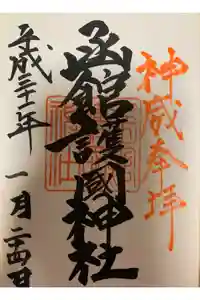 神威奉拝
函館護國神社
平成三十一年 一月二十四日